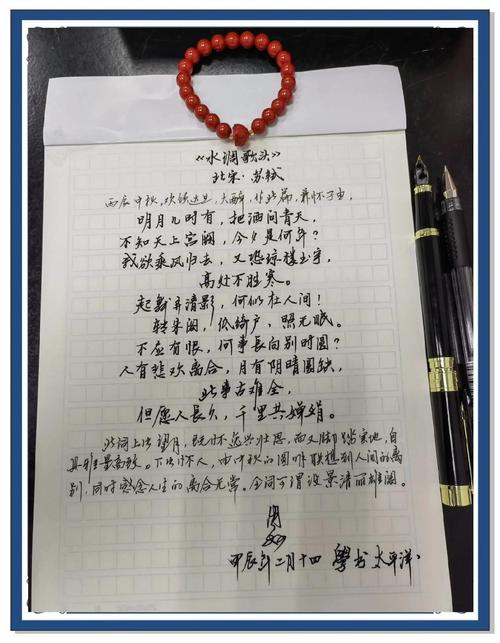 《水调歌头》
北宋·苏轼
丙辰中秋,欢饮达旦,大醉,作此篇,兼怀子由。
明月几时有,把酒问青天,
不知天上宫阙,今夕是何年?
我欲乘风归去,又恐琼楼玉宇,
高处不胜寒。
起舞弄清影,何似在人间!
转朱阁,低绮户,照无眠。
不应有恨,何事長向别时圆?
人有悲欢离合,月有阴晴圆缺,
此事古难全,
但愿人長久,千里共婵娟。
此词上片望月,既怀逸兴壮思,而又脚踏实地,自
具雅量高致。下片怀人,由中秋的圆月联想到人间的离
别,同时感念人生的离合无常。全词可谓设景清丽雄阔。
甲辰年二月十四 學书太平洋